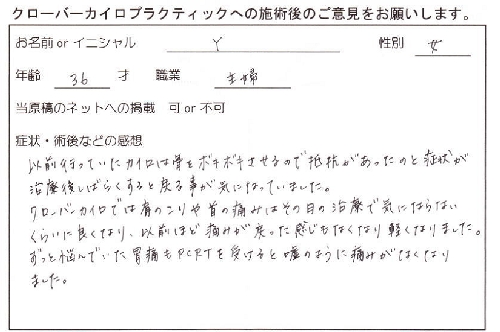 クローバーカイロプラクティックへの施術後のご意見をお願いします。
お名前 or イニシャル Y 性別 女
年齢 36 才 職業 主婦
当原稿のネットへの掲載 可 or 不可
症状・術後などの感想
以前行っていたカイロは骨をボキボキさせるので抵抗があったのと症状が
治療後しばらくすると戻る事が気になっていました。
クローバーカイロでは肩のこりや首の痛みはその日の治療で気にならない
くらいに良くなり、以前ほど痛みが戻った感じもなくなり軽くなりました。
ずっと悩んでいた胃痛もPCRTを受けると嘘のように痛みがなくなり
ました。